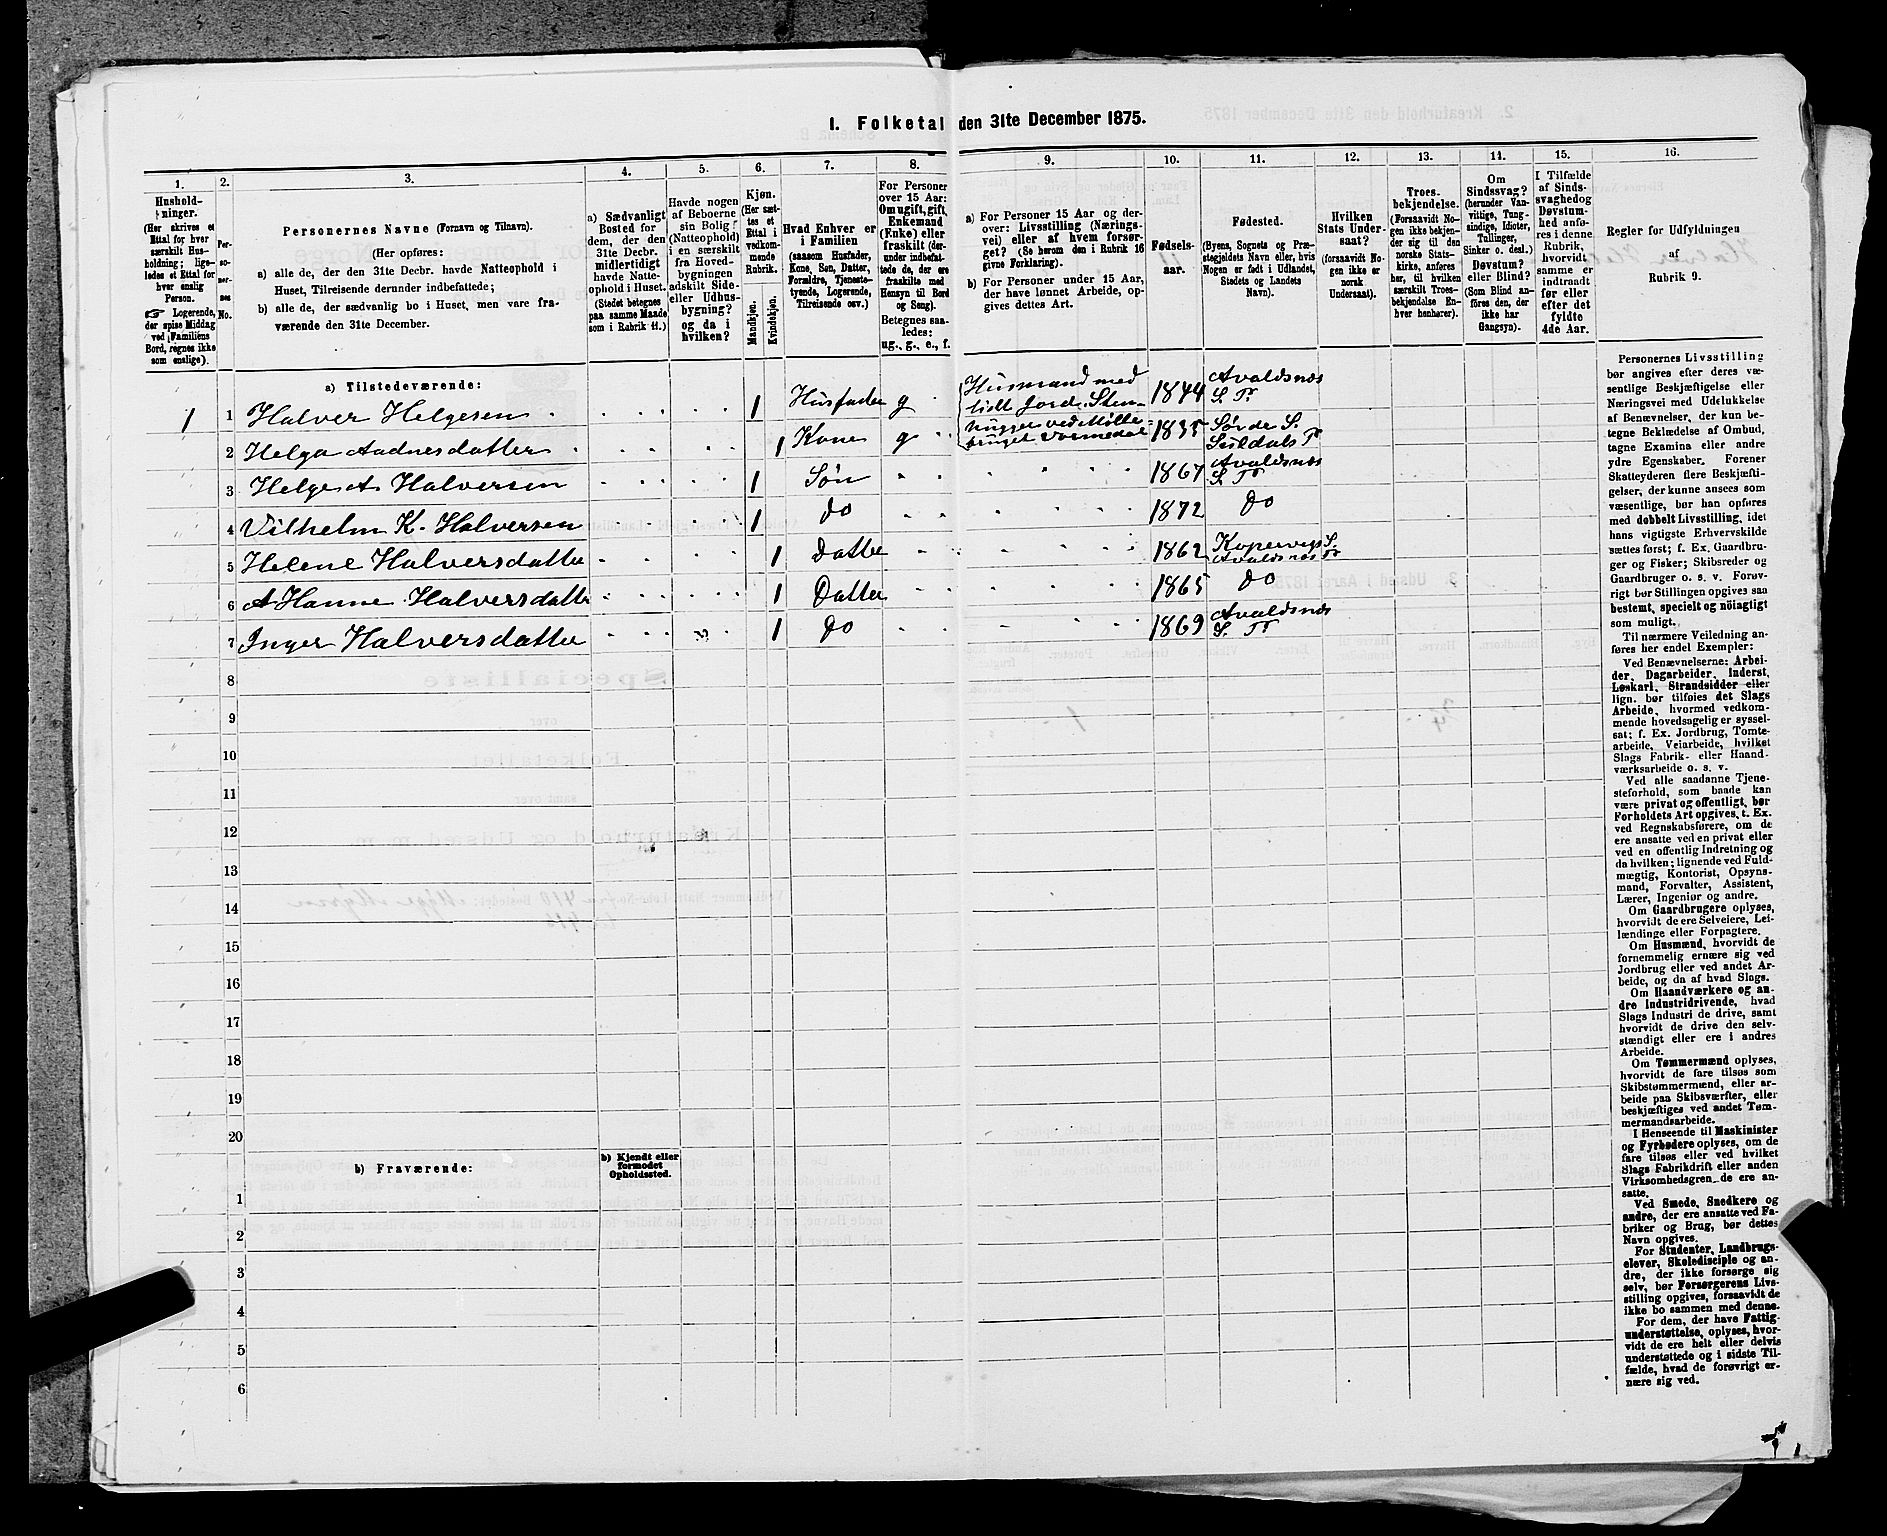 1. Folketal den 31te December 1875.
1. 2. 3. 4. 5. 6. 7. 8. 9. 10. 11. 12. 13. 14. 15. 16.
Hushold-
ninger.
(Her skrives et
Ettal for hver
særskilt Hus-
holdning; lige-
ledes et Ettal for
hver enslig
Person.
☞ Logerende,
der spise Middag
ved Familiens
Bord, regnes ikke
som enslige).
Per-
so-
ner-
nes
No.
Personernes Navne (Fornavn og Tilnavn).
(Her opføres:
a) alle de, der den 31te Decbr. havde Natteophold i
Huset, Tilreisende derunder indbefattede;
b) alle de, der sædvanlig bo i Huset, men vare fra-
værende den 31te December.
a) Sædvanligt
Bosted for
dem, der den
31te Decbr.
midlertidigt
havde Natte-
ophold i Huset.
(Stedet betegnes
paa samme Maade
som i Rubrik 11.)
Havde nogen
af Beboerne
sin Bolig
(Natteophold)
i en særskilt
fra Hoved-
bygningen
adskilt Side-
eller Udhus-
bygning?
og da i
hvilken?
Kjøn.
(Her sæt-
tes et
Ettal i
vedkom-
mende
Rubrik.
Mandkjøn.
Kvindekjøn.
Hvad Enhver er
i Familien
(saasom Husfader,
Kone, Søn, Datter,
Forældre, Tjeneste-
tyende, Logerende,
Tilreisende osv.)
For Personer
over 15 Aar:
Om ugift, gift,
Enkemand
(Enke) eller
fraskilt (der-
under indbefat-
tede de, der ere
fraskilte med
Hensyn til Bord
og Seng).
Betegnes saa-
ledes:
ug., g., e., f.
a) For Personer 15 Aar og der-
over: Livsstilling (Nærings-
vei) eller af hvem forsør-
get? (Se herom den i Rubrik 16
givne Forklaring).
b) For Personer under 15 Aar,
der have lønnet Arbeide, op-
gives dettes Art.
Fødsels-
aar.
Fødested.
(Byens, Sognets og Præ-
stegjeldets Navn eller, hvis
Nogen er født i Udlandet,
Stedets og Landets
Navn).
Hvilken
Stats Under-
saat?
(forsaavidt No-
gen ikke er
norsk
Undersaat).
Troes-
bekjendelse.
(Forsaavidt No-
gen ikke bekjen-
der sig til den
norske Stats-
kirke, anføres
her, til hvilken
særskilt Troes-
bekjendelse En-
hver henhører).
Om
Sindssvag?
(herunder Van-
vittige, Tung-
sindige, Idioter,
Tullinger,
Sinker o. desl.)
Døvstum?
eller Blind?
(Som Blind an-
føres den, der
ikke har
Gangsyn).
I Tilfælde
af Sinds-
svaghed og
Døvstum-
hed anfø-
res i denne
Rubrik,
hvorvidt
samme er
indtraadt
før eller
efter det
fyldte
4de Aar.
Regler for Udfyldningen
af
Rubrik 9.
a) Tilstedeværende:
1 1 Halver Helgesen 1 Husfader g Husmand med lidt Jord. Sten- 1844 Avaldsnæs S. Pr.
2 Helga Aadnesdatter 1 Kone g hugger ved Mølle- bruget Vormedal 1835 Søvde S. Suldals Pr
3 Helge A Halversen 1 Søn 1867 Avaldsnæs S. Pr.
4 Vilhelm K. Halversen 1 Do 1872 Do
5 Helene Halversdatter 1 Datter 1862 Kopervigs S. Avaldsnæs Pr
6 A Hanne Halversdatter 1 Datter 1865 Do
7 Inger Halversdatter 1 Do 1869 Avaldsnæs S. Pr
8
9
10
11
12
13
14
15
16
17
18
19
20
b) Fraværende:
b) Kjendt eller
formodet
Opholdssted.
1
2
3
4
5
6
Personernes Livsstilling
bør angives efter deres væ-
sentlige Beskjæftigelse eller
Næringsvei med Udelukkelse
af Benævnelser, der kun be-
tegne Beklædelse af Ombud,
tagne Examina eller andre
ydre Egenskaber. Forener
Skatteyderen flere Beskjæfti-
gelser, der kunne ansees som
væsentlige, bør han opføres
med dobbelt Livsstilling, idet
hans vigtigste Erhvervskilde
sættes først; f. Ex. Gaardbru-
ger og Fisker; Skibsreder og
Gaardbruger o. s. v. Forøv-
rigt bør Stillingen opgives saa
bestemt, specielt og nöiagtigt
som muligt.
Til nærmere Veiledning an-
føres her endel Exempler:
Ved Benævnelserne: Arbei-
der, Dagarbeider, Inderst,
Løskarl, Strandsidder eller
lign. bør tilføies det Slags
Arbeide, hvormed vedkom-
mende hovedsagelig er syssel-
sat; f. Ex. Jordbrug, Tomte-
arbeide, Veiarbeide, hvilket
Slags Fabrik- eller Haand-
værksarbeide o. s. v.
Ved alle saadanne Tjene-
steforhold, som baade kan
være privat og offentligt, bør
Forholdets Art opgives, t. Ex.
ved Regnskabsførere, om de
ere ansatte ved en privat eller
ved en offentlig Indretning og
da hvilken; lignende ved Fuld-
mægtig, Kontorist, Opsyns-
mand, Forvalter, Assistent,
Lærer, Ingeniør og andre.
Om Gaardbrugere oplyses,
hvorvidt de ere Selveiere, Lei-
lændinge eller Forpagtere.
Om Husmænd, hvorvidt de
fornemmelig ernære sig ved
Jordbrug eller ved andet Ar-
beide, og da af hvad Slags.
Om Haandværkere og an-
dre Industridrivende, hvad
Slags Industri de drive, samt
hvorvidt de drive den selv-
stændigt eller ere i andres
Arbeide.
Om Tømmermænd oplyses,
hvorvidt de fare tilsøs som
Skibstømmermænd, eller ar-
beide paa Skibsværfter, eller
beskjæftiges ved andet Tøm-
mermandsarbeide.
I Henseende til Maskinister
og Fyrbødere oplyses, om de
fare tilsøs eller ved hvilket
Slags Fabrikdrift eller anden
Virksomhedsgren de ere an-
satte.
Ved Smede, Snedkere og
andre, der ere ansatte ved Fa-
briker og Brug, bør dettes
Navn opgives.
For Studenter, Landbrugs-
elever, Skoledisciple og an-
dre, der ikke forsørge sig
selv, bør Forsørgerens Livs-
stilling opgives, forsaavidt de
ikke bo sammen med denne.
For dem, der have Fattig-
understøttelse, oplyses, hvor-
vidt de ere helt eller delvis
understøttede og i sidste Til-
fælde, hvad de forøvrigt er-
nære sig ved.